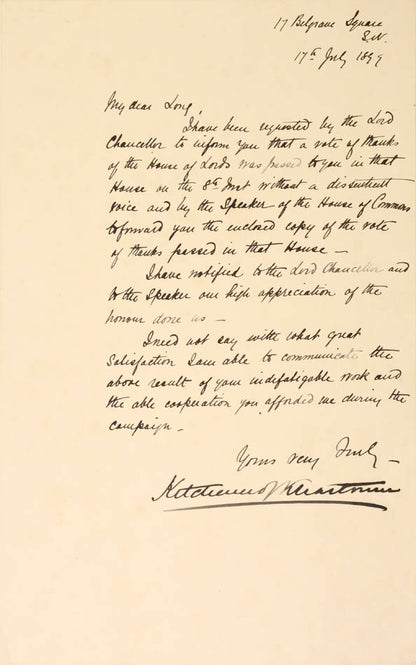 17 Belgrave Square
S.W.
17th July 1899
My dear Long,
I have been requested by the Lord
Chancellor to inform you that a vote of thanks
of the House of Lords was passed to you in that
House on the 8th Inst without a dissentient
voice and by the Speaker of the House of Commons
to forward you the enclosed copy of the vote
of thanks passed in that House —
I have notified to the Lord Chancellor and
to the Speaker our high appreciation of the
honour done us —
I need not say with what great
Satisfaction I am able to communicate the
above result of your indefatigable work and
the able cooperation you afforded me during the
campaign —
Yours very truly —
Kitchener of Khartoum